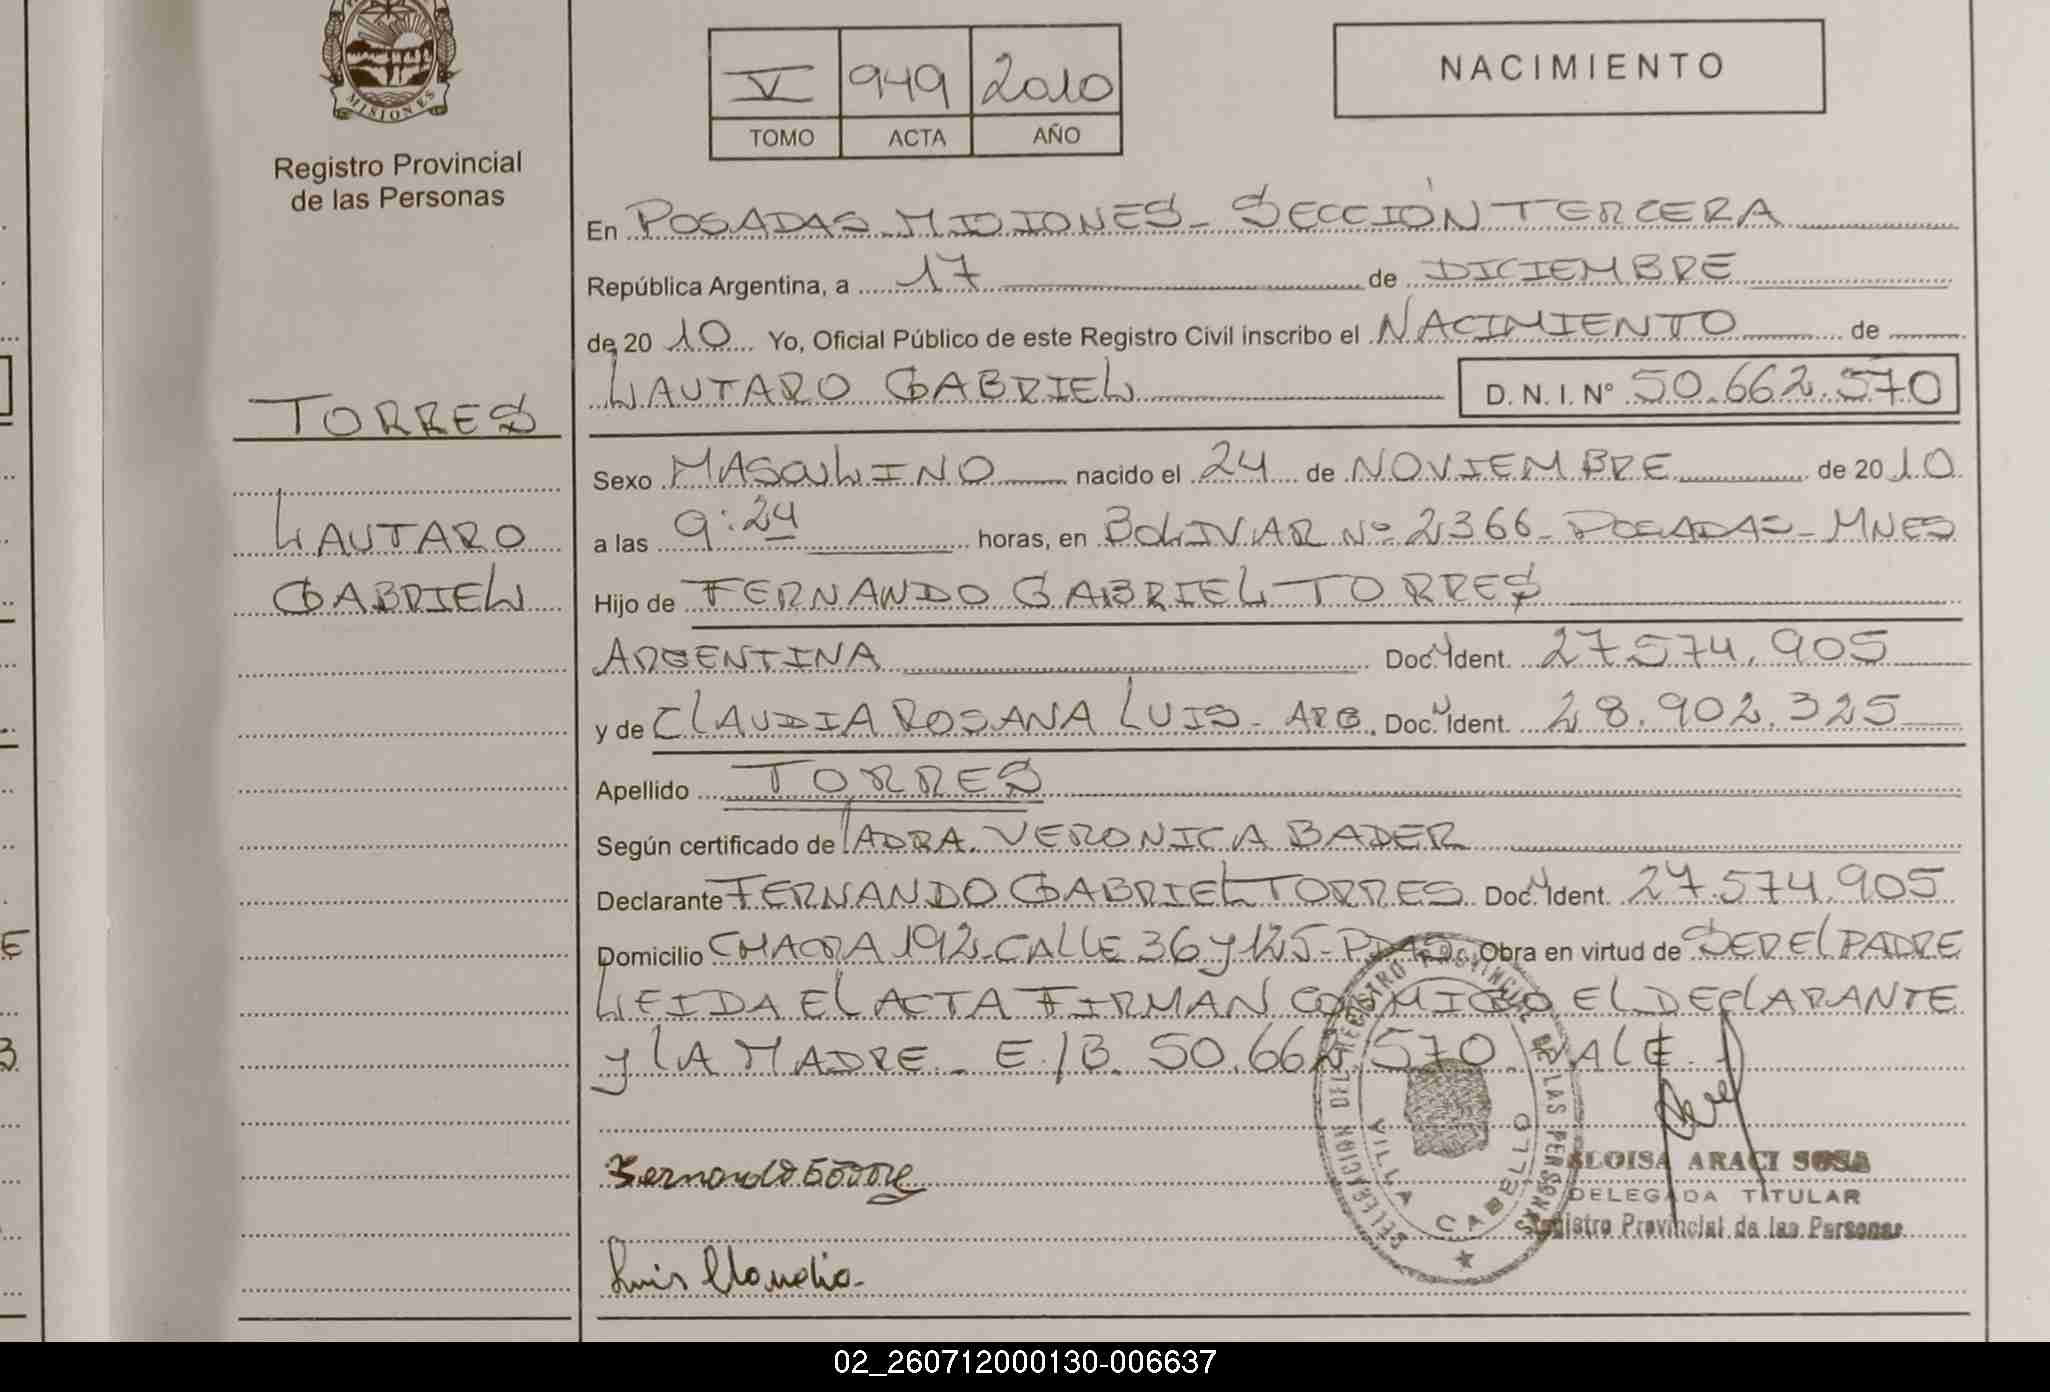 MISIONES
Registro Provincial
de las Personas
TORRES
LAUTARO
GABRIEL
V 949 2010
TOMO ACTA AÑO
NACIMIENTO
En POSADAS-MISIONES- SECCIÓN TERCERA
República Argentina, a 17 de DICIEMBRE
de 20 10 Yo, Oficial Público de este Registro Civil inscribo el NACIMIENTO de
LAUTARO GABRIEL D. N. I. Nº 50.662.570
Sexo MASCULINO nacido el 24 de NOVIEMBRE de 20 10
a las 9:24 horas, en BOLIVAR Nº 2366- POSADAS- MNES
Hijo de FERNANDO GABRIEL TORRES
ARGENTINA Doc. Ident. 27.574.905
y de CLAUDIA ROSANA LUIS- ARG. Doc. Ident. 28.902.325
Apellido TORRES
Según certificado de la DRA. VERONICA BADER
Declarante FERNANDO GABRIEL TORRES Doc. Ident. 27.574.905
Domicilio CHACRA 192-CALLE 36 y 125-PDAS Obra en virtud de SER EL PADRE
LEIDA EL ACTA FIRMAN CONMIGO EL DECLARANTE
y LA MADRE- E/B. 50.662.570. VALE.
Luis Claudia
DEL REGISTRO PROVINCIAL DE LAS PERSONAS
VILLA CABELLO
ELOISA ARACI SOSA
DELEGADA TITULAR
Registro Provincial de las Personas
E
3.
02_260712000130-006637